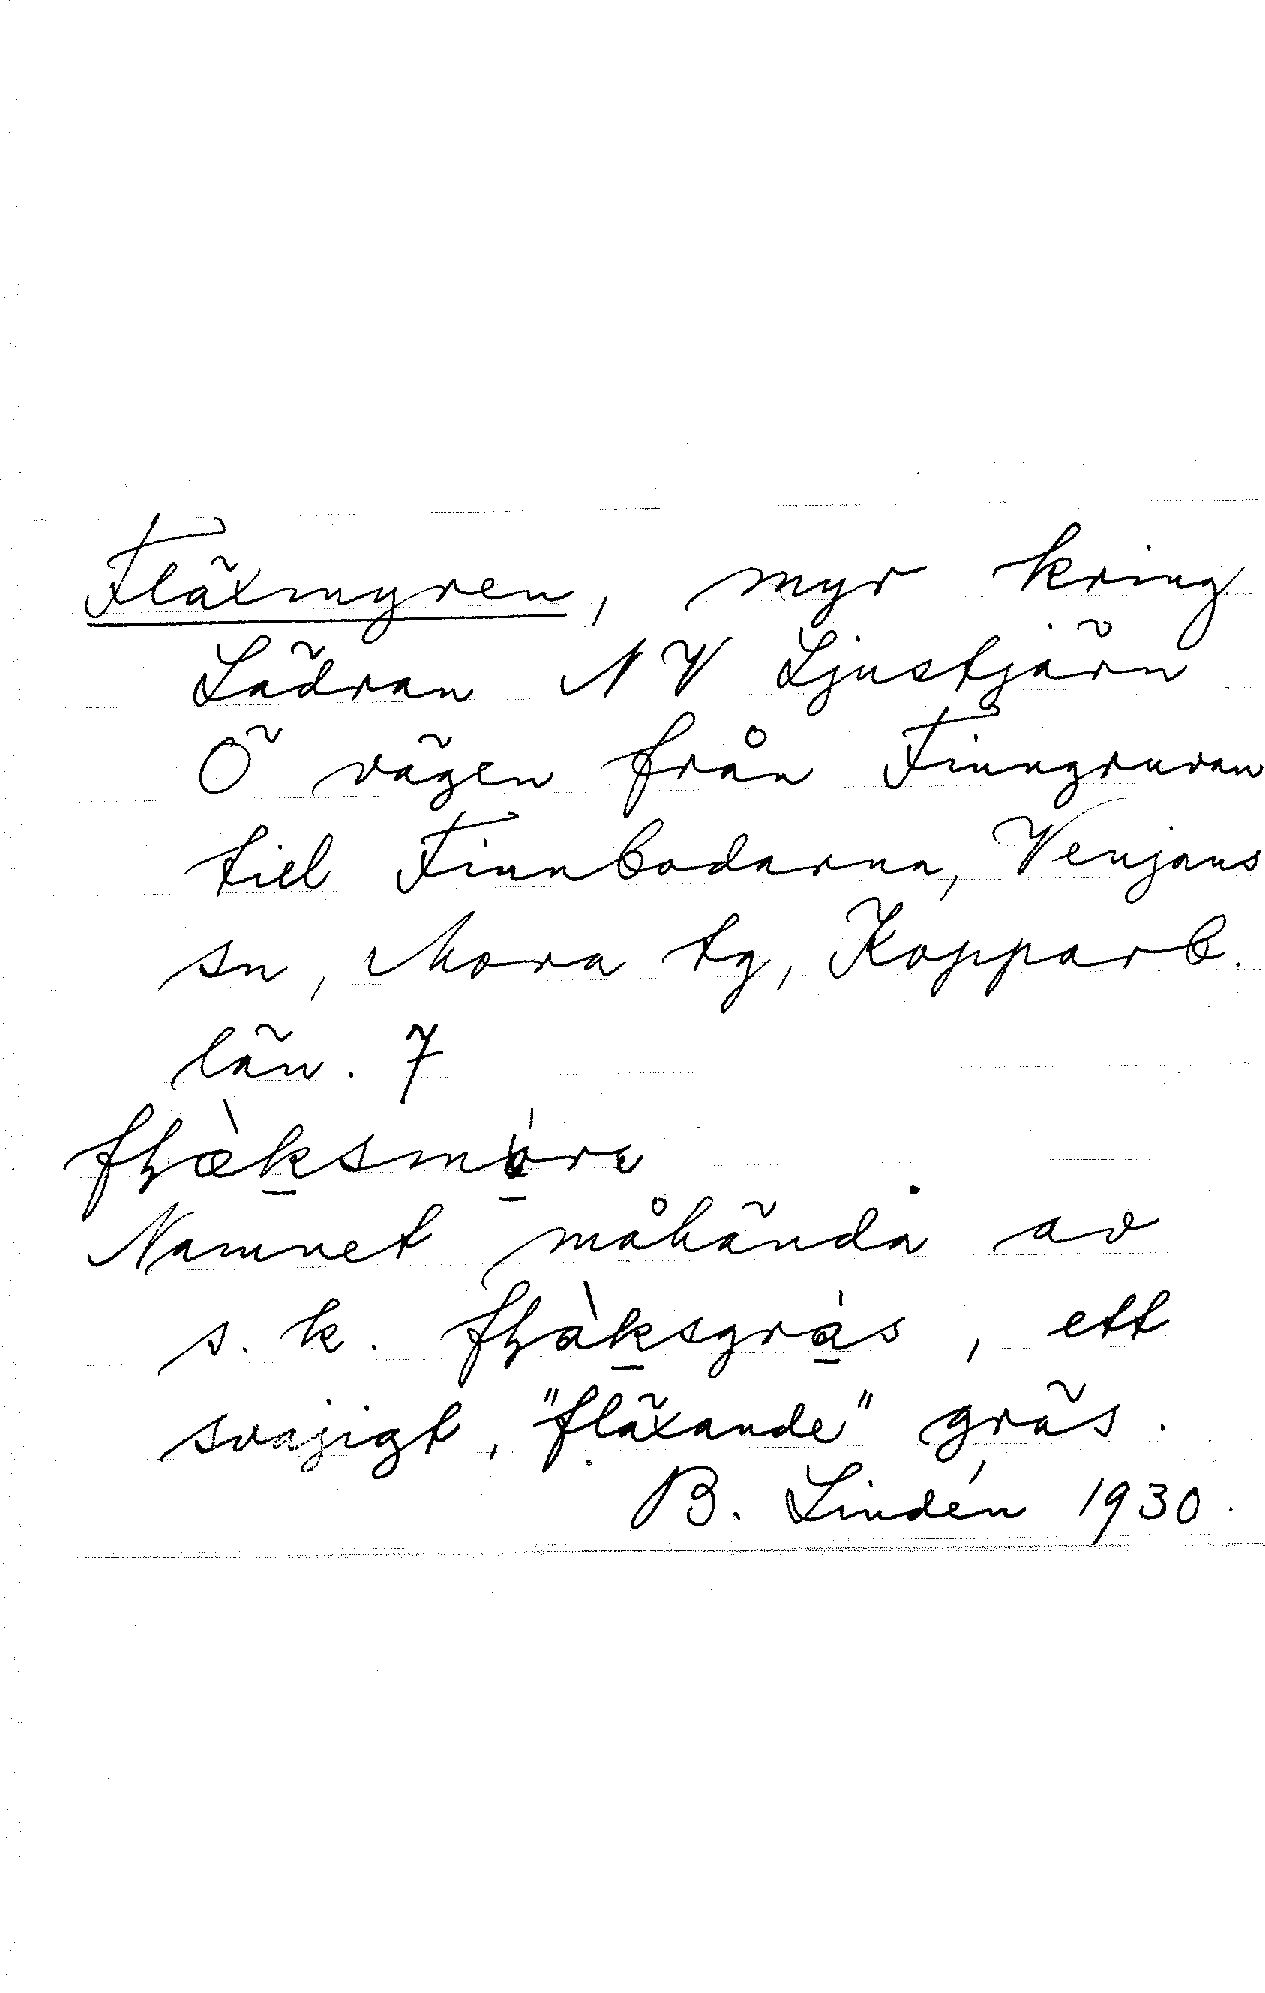 Fläxmyren, myr kring
Lädran NV Ljustjärn
Ö vägen från Finngruvan
till Finnbodarna, Venjans
sn, Mora tg, Kopparb.
län. 7
Namnet måhända av
s. k. , ett
svajigt, "fläxande" gräs.
B. Lindén 1930.